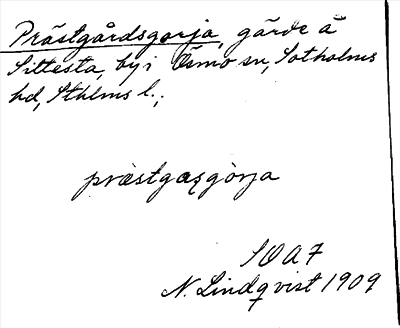 Prästgårdsgorja, gärde å
Sittesta, by i Ösmo sn, Sotholms
hd, Sthlms l.;
præstgaꞩgòrja
SOA7
N. Lindqvist 1909